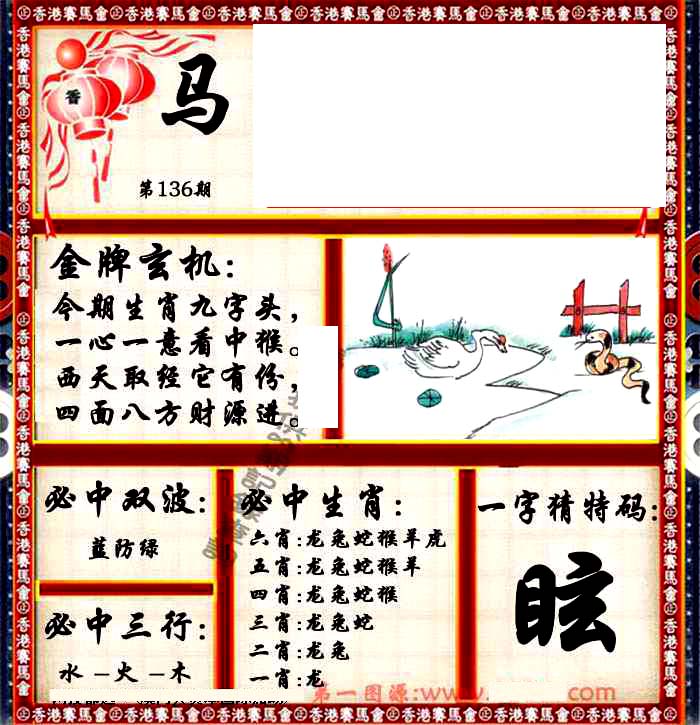 香港赛馬會 香港赛馬會 香港赛馬會 香港赛馬會 香港赛馬會 香港赛馬會 香港赛馬會
香
马
第136期
金牌玄机:
今期生肖九字头，
一心一意看中猴。
西天取经它有份，
四面八方财源进。
必中双波:
蓝防绿
必中三行:
水－火－木
必中生肖:
六肖:龙兔蛇猴羊虎
五肖:龙兔蛇猴羊
四肖:龙兔蛇猴
三肖:龙兔蛇
二肖:龙兔
一肖:龙
一字猜特码:
眩
第一图源:www. com